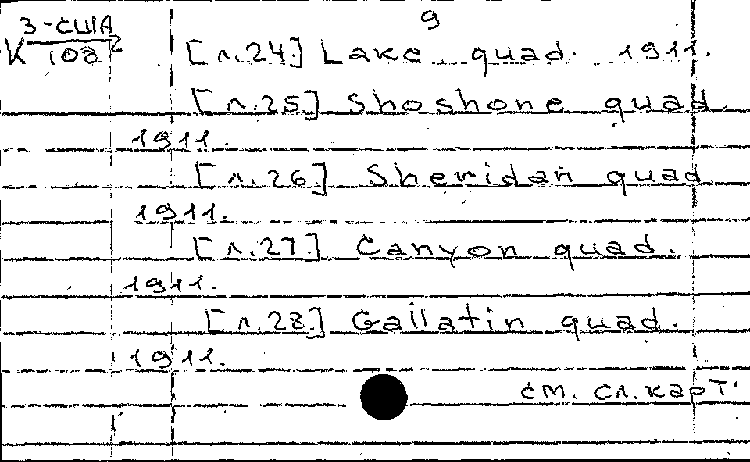 9
3-США
К 108²
[л.24] Lake quad. 1911.
[л.25] Shoshone quad.
1911.
[л.26] Sheridan quad
1911.
[л.27] Canyon quad.
1911.
[л.28] Gallatin quad.
1911.
см. сл. карт.